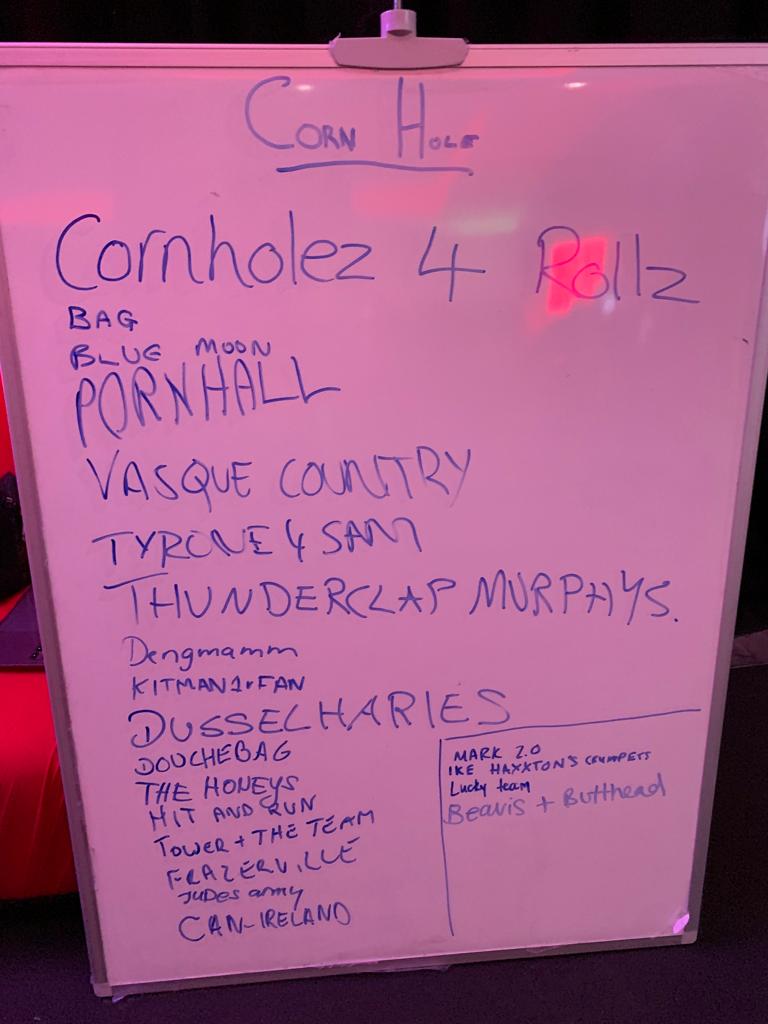 CORN HOLE
Cornholez 4 Rollz
BAG
BLUE MOON
PORNHALL
VASQUE COUNTRY
TYRONE 4 SAM
THUNDERCLAP MURPHYS.
Dengmamm
KITMAN1rFAN
DUSSELHARIES
DOUCHEBAG
THE HONEYS
HIT AND RUN
TOWER + THE TEAM
FRAZERVILLE
JUDES army
CAN-IRELAND
MARK 2.0
IKE HAXXTON'S CRUMPETS
Lucky team
Beavis + Butthead